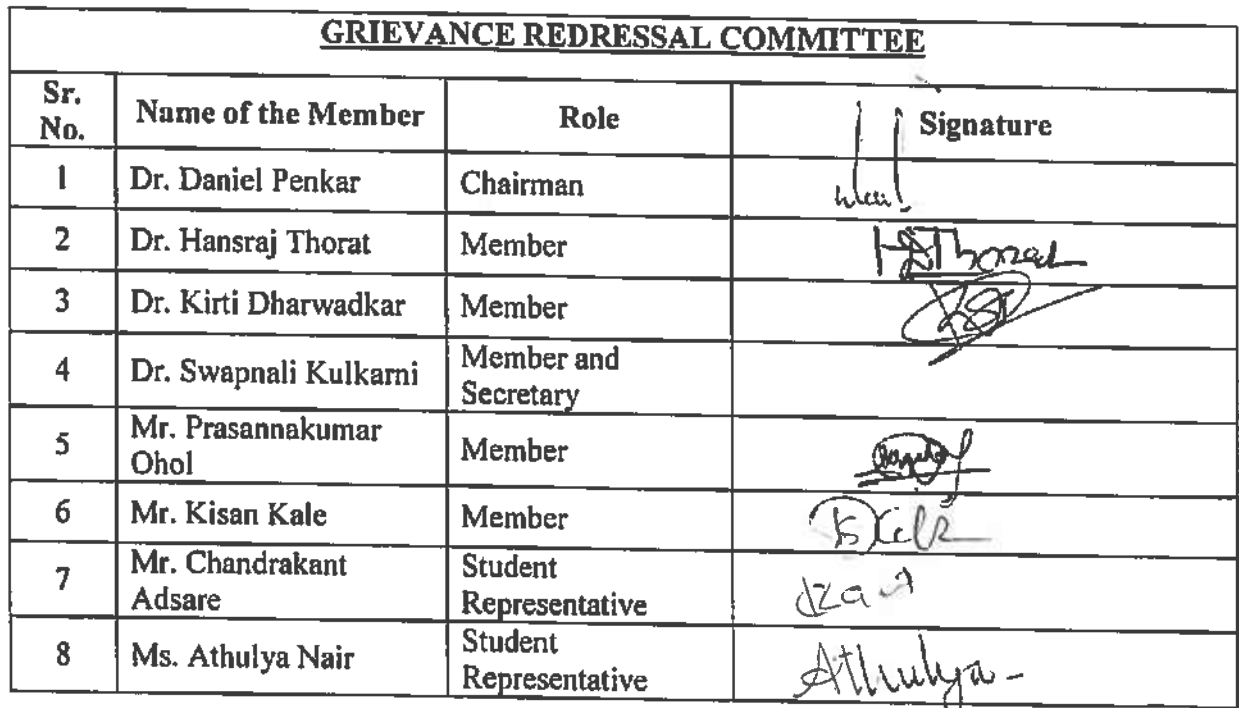 GRIEVANCE REDRESSAL COMMITTEE
Sr. No. Name of the Member Role Signature
1 Dr. Daniel Penkar Chairman
2 Dr. Hansraj Thorat Member HSThorat
3 Dr. Kirti Dharwadkar Member
4 Dr. Swapnali Kulkarni Member and Secretary
5 Mr. Prasannakumar Ohol Member
6 Mr. Kisan Kale Member
7 Mr. Chandrakant Adsare Student Representative
8 Ms. Athulya Nair Student Representative Athulya